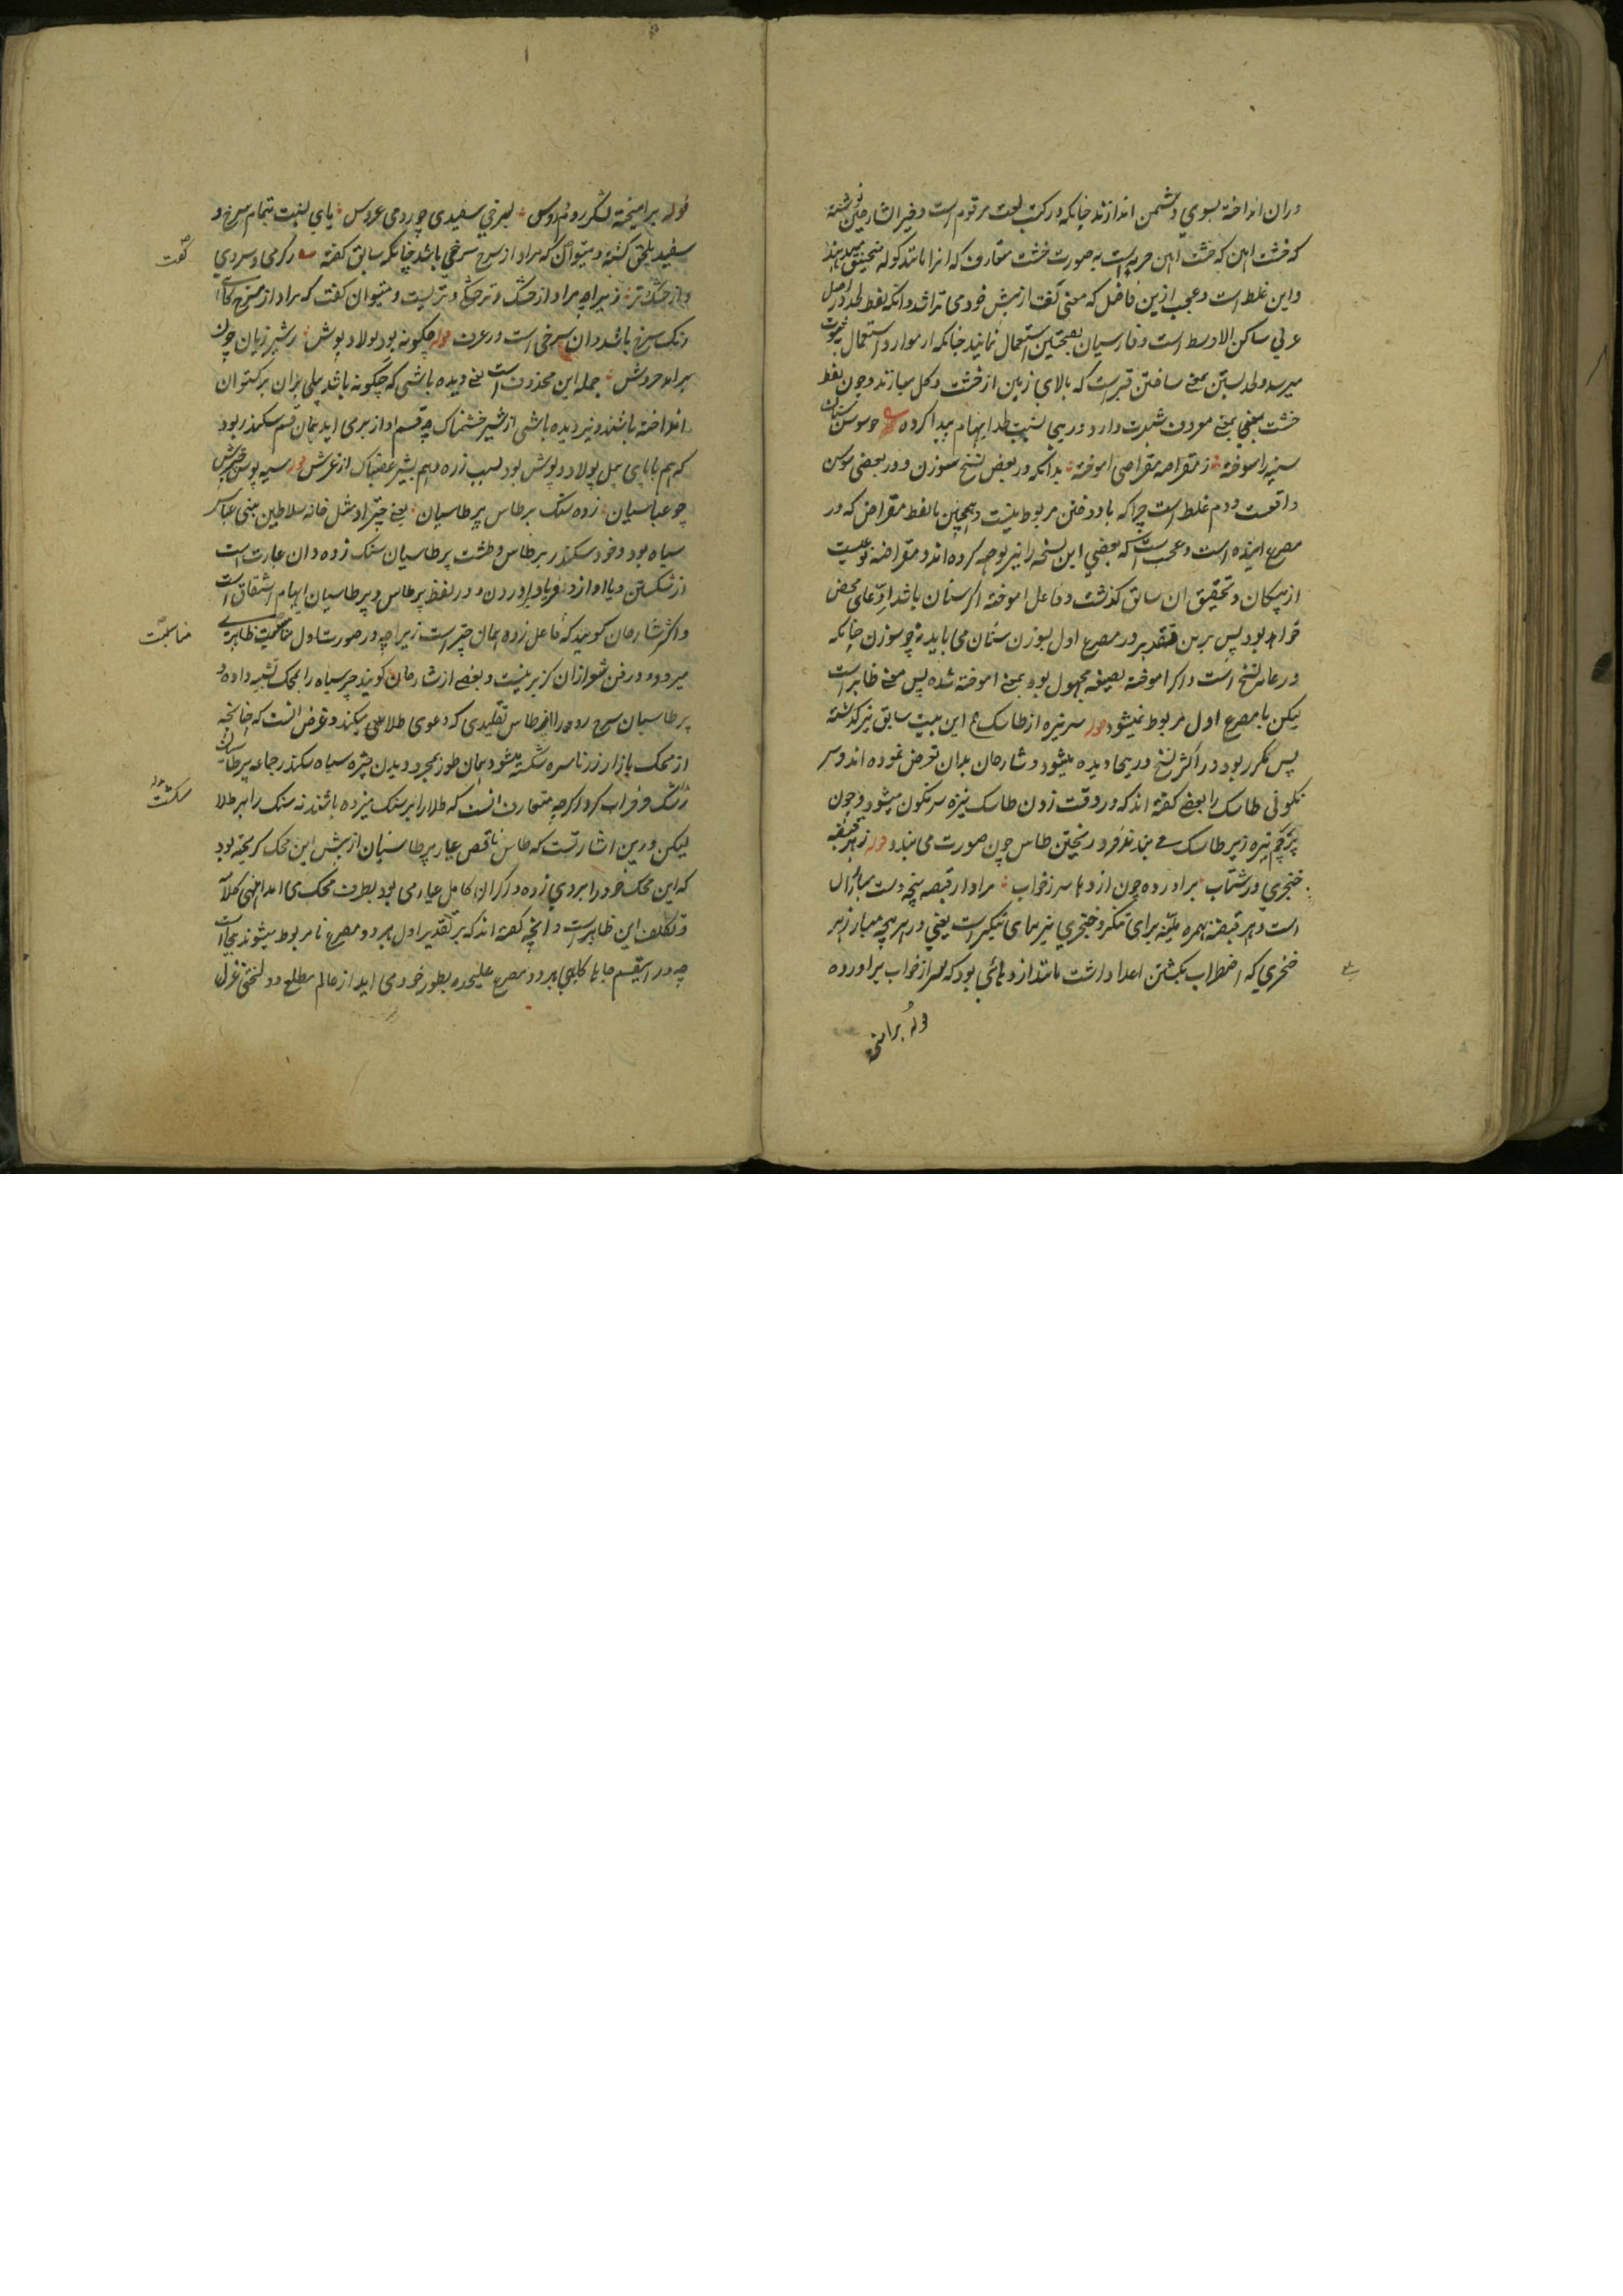 دران انداخته بسوي دشمن اندازند چنانكه در كتب لغت مرقوم است و خير الشارحين نوشته
كه خشت اهن كه خشت اهن حربه ايست به صورت خشت متعارف كه انرا مانند كوله منجنيق ميدهند
و اين غلط است و عجب ازين فاضل كه معنى لغت از پيش خودى تراشد و انكه لفظ لحد در اصل
عربي ساكن الاوسط است و فارسيان بفتحتين استعمال نمايند چنانكه از موارد استعمال بثبوت
ميرسد و لحد بستن بمعنى ساختن قبر است كه بالاي زمين از خشت و كل سازند و چون لفظ
خشت بمعنى معروف شهرت دارد درينجا نسبت لحد ايهام پيدا كرده چو سوسن سنان
سينه را سوخته ز مقراضه مقراضى اموخته بدانكه در بعض نسخ سوزن و در بعضى سوسن
واقعست و دوم غلط است چرا كه با دوختن مربوط نيست و همچنين با لفظ مقراض كه در
مصرع اينده است و عجب است كه بعضي اين نسخه را نيز توجيه كرده اند و مقراضه نوعيست
از پيكان و تحقيق ان سابق كذشت و فاعل اموخته اكر سنان باشد ادّعاى محض
خواهد بود پس برين تقدير در مصرع اول بسوزن سنان مى بايد نه چو سوزن چنانكه
در عامه نسخ است و اكر اموخته بصيغه مجهول بود بمعنى اموخته شده پس معنى ظاهر است
ليكن با مصرع اول مربوط نميشود قوله سر نيزه از طاسك اين بيت سابق نيز كذشته
پس مكرر بود در اكثر نسخ درينجا ديده ميشود و شارحان بدان تعرض نموده اند و سر
نكونى طاسك را بعضى كفته اند كه در وقت زدن طاسك نيزه سرنكون ميشود و چون
پرچم نيزه زير طاسك مى بندند فرو ريختن طاس چون صورت مى بندد قوله ز هر قبضه
خنجري در شتاب براورده چون اژدها سر ز خواب مراد از قبضه پنجه دست مبارزان
است و هر قبضه بهمزه ملينه براى تنكير و خنجري نيز بياى تنكير است يعني در هر پنجه مبارز هر
خنجري كه اضطراب بكشتن اعدا داشت مانند اژدهائي بود كه سر از خواب براورده
قوله برامیخته
قوله برامیخته لشكر روم و روس بسرخي سفيدى چو روى عروس ياي نسبت بتمام سرخ و
سفيد ملحق كشته و ميتوان كه مراد از سرخ سرخى باشد چنانكه سابق كفته ز كرمى و سردى
و از خشك و تر زيرا چه مراد از خشك و تر خشكى و تريست و ميتوان كفت كه مراد از سرخ كاهى
رنك سرخ باشد و ان سرخى است در عرف قوله چكونه بود پولاد پوش ز شير ژيان چون
برايد خروش جمله اين محذوف است يعنى ديده باشى كه چكونه باشد پيلى بران بركستوان
انداخته باشند و نيز ديده باشى از شير خشمناك چه قسم اواز برمى ايد همان قسم سكندر بود
كه هم با پاى پيل پولاد پوش بود بسبب زره و هم بشير غضبناك از غرش قوله سيه پوش چترش
چو عباسيان زده سنك بر طاس پرطاسيان يعنى چتر او مثل خانه سلاطين بنى عباس
سياه بود و خود سكندر بر طاس و طشت پرطاسيان سنك زده و ان عبارت است
از شكستن و يا اواز و فرياد براوردن و در لفظ پرطاس و پرطاسيان ايهام اشتقاق است
و اكثر شارحان كويند كه فاعل زده همان چتر است زيرا چه در صورت اول مناسبت ظاهرى
ميرود و در فن شعر ازان كزير نيست و بعضى از شارحان كويند چتر سياه را بمحك تشبيه داده
پرطاسيان سرخ رو را بطاس تقليدى كه دعوى طلائى ميكند و غرض انست كه چنانچه
از محك بازار زر ناسره شكسته ميشود همان طور بمجرد ديدن چتر سياه سكندر جماعه پرطاسيان
شكست و خراب كرد اكرچه متعارف انست كه طلا را بر سنك ميزده باشند نه سنك را بر طلا
ليكن درين اشارتست كه طاس ناقص عيار پرطاسيان از پيش اين محك كريخته بود
كه اين محك خود را بر وي زده و زر كران كامل عيار مى بود بطرف محك مى امد انتهى كلامه
و تكلف اين ظاهر است و انچه كفته اند كه بر تقدير اول هر دو مصرع نامربوط ميشوند بيجاست
چه در اينقسم جاها كاهي هر دو مصرع عليحده بطور خود مى ايد از عالم مطلع دو لختى غزل
كفت
مناسبت
شكست